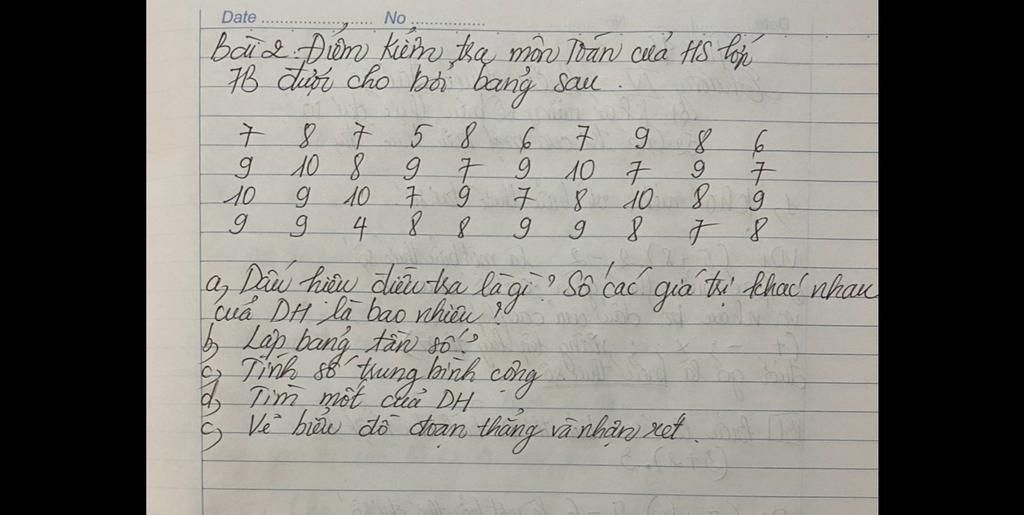 Date .................... No ..............
Bài 2. Điểm kiểm tra môn Toán của HS lớp
7B được cho bởi bảng sau.
7 8 7 5 8 6 7 9 8 6
9 10 8 9 7 9 10 7 9 7
10 9 10 7 9 7 8 10 8 9
9 9 4 8 8 9 9 8 7 8
a, Dấu hiệu điều tra là gì? Số các giá trị khác nhau
của DH là bao nhiêu?
b, Lập bảng tần số?
c, Tính số trung bình cộng
d, Tìm mốt của DH
c, Vẽ biểu đồ đoạn thẳng và nhận xét.